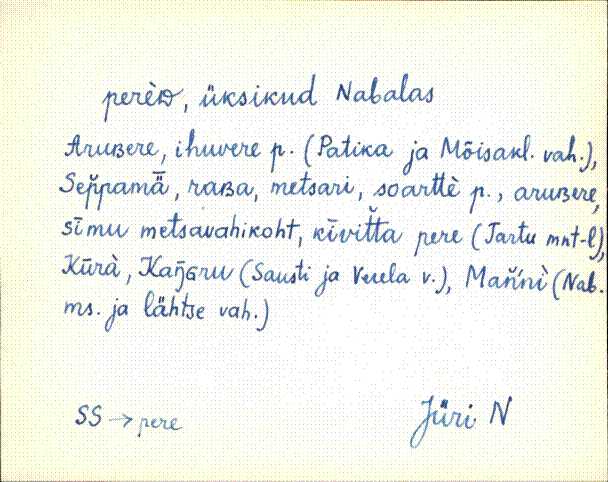 perèᴅ, üksikud Nabalas
Aruʙere, ihuvere p. (Patika ja Mõisakl. vah.),
Sep̆pamǟ, raʙa, metsari, soarttè p., aruʙere,
sīmu metsavahikoht, kīvit̆ta pere (Tartu mnt-l),
Kūrà, Kaŋ̄ɢru (Sausti ja Veela v.), Mañ̆nì (Nab.
ms. ja lähtse vah.)
SS → pere
Jüri N